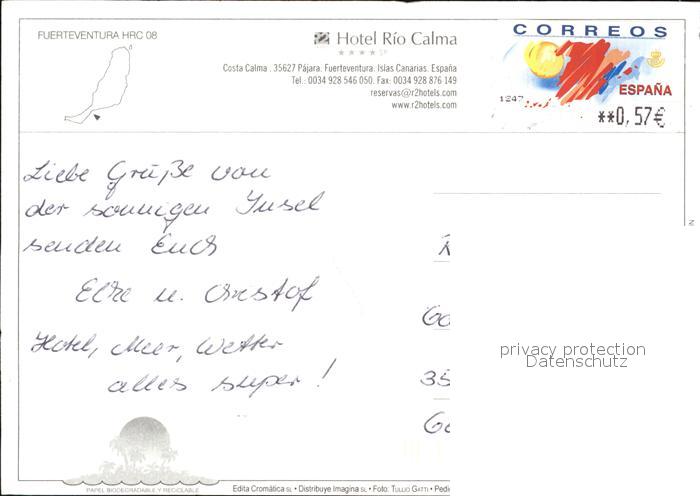 FUERTEVENTURA HRC 08
Hotel Río Calma
Costa Calma . 35627 Pájara. Fuerteventura. Islas Canarias. España
Tel.: 0034 928 546 050. Fax: 0034 928 876 149
reservas@r2hotels.com
www.r2hotels.com
CORREOS
ESPAÑA
1247
**0,57€
Liebe Grüße von
der sonnigen Insel
senden Euch
u.
Hotel, Meer, Wetter
alles super!
35
privacy protection
Datenschutz
PAPEL BIODEGRADABLE Y RECICLABLE
Edita Cromática SL • Distribuye Imagina SL • Foto: TULLIO GATTI • Pedi